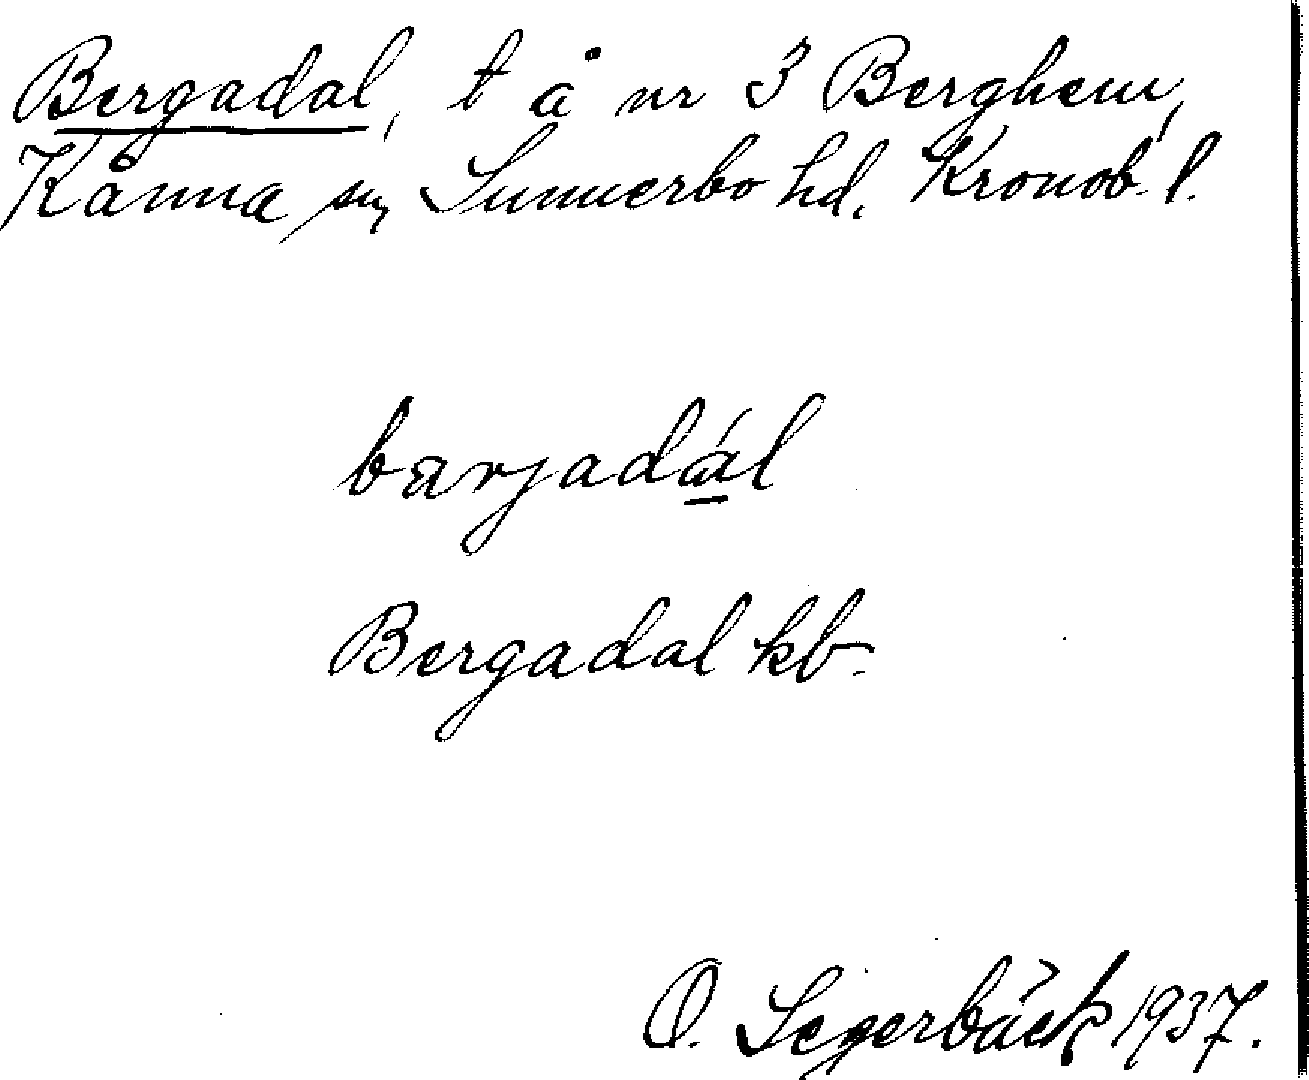 Bergadal, t å nr 3 Berghem,
Kånna sn, Sunnerbo hd. Kronob. l.
bærjadál
Bergadal kb.
O. Segerbäck 1937.